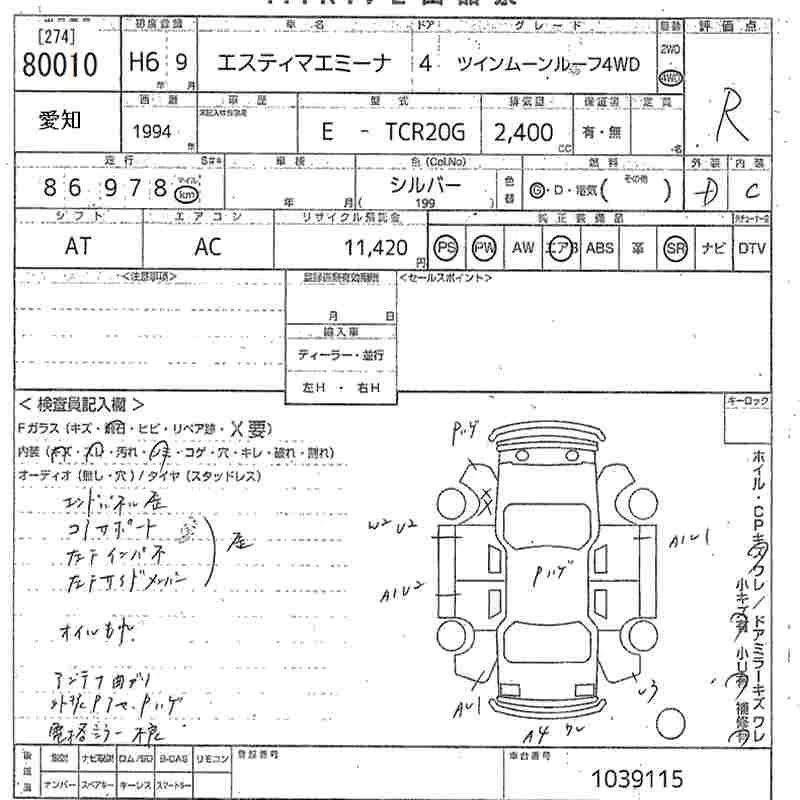 車名 ドア グレード 駆動 評価点
[274]
80010 H6 9 エスティマエミーナ 4 ツインムーンルーフ4WD 2WD 4WD R
年 月
愛知 1994 年 車歴 型式 排気量 定員
E - TCR20G 2,400 CC 有・無 名
走行 車検 色(Col.No) 燃料 外装 内装
86978 マイル km 年 月 シルバー ( 199 ) 色替 G・D・電気( その他 ) D C
シフト エアコン リサイクル預託金 純正装備品
AT AC 11,420 円 PS PW AW エアB ABS 革 SR ナビ DTV
<注意事項> <セールスポイント>
月 日
輸入車
ディーラー・並行
左H ・ 右H
<検査員記入欄> キーロック
Fガラス(キズ・飛石・ヒビ・リペア跡・X要)
内装(キズ・スレ・汚れ・シミ・コゲ・穴・キレ・破れ・割れ)
オーディオ(無し・穴)/タイヤ(スタッドレス)
エンドパネル 歪
コアサポート
左テインパネ
左テサイドメンバー
歪
オイルもれ
アンテナ曲がり
外装PアセPハゲ
電格ミラー不良
Pハゲ
W2 U2
A1U2
A1U1
Pハゲ
AU1
U3
A4 ワレ
ホイル・CPキズワレ/ドアミラーキズワレ
小キズ有 小U有 補修有
後送品 ナビ取説 ロム/SD B-CAS リモコン 登録番号 車台番号
ナンバー スペアキー キーレス スマートキー 1039115